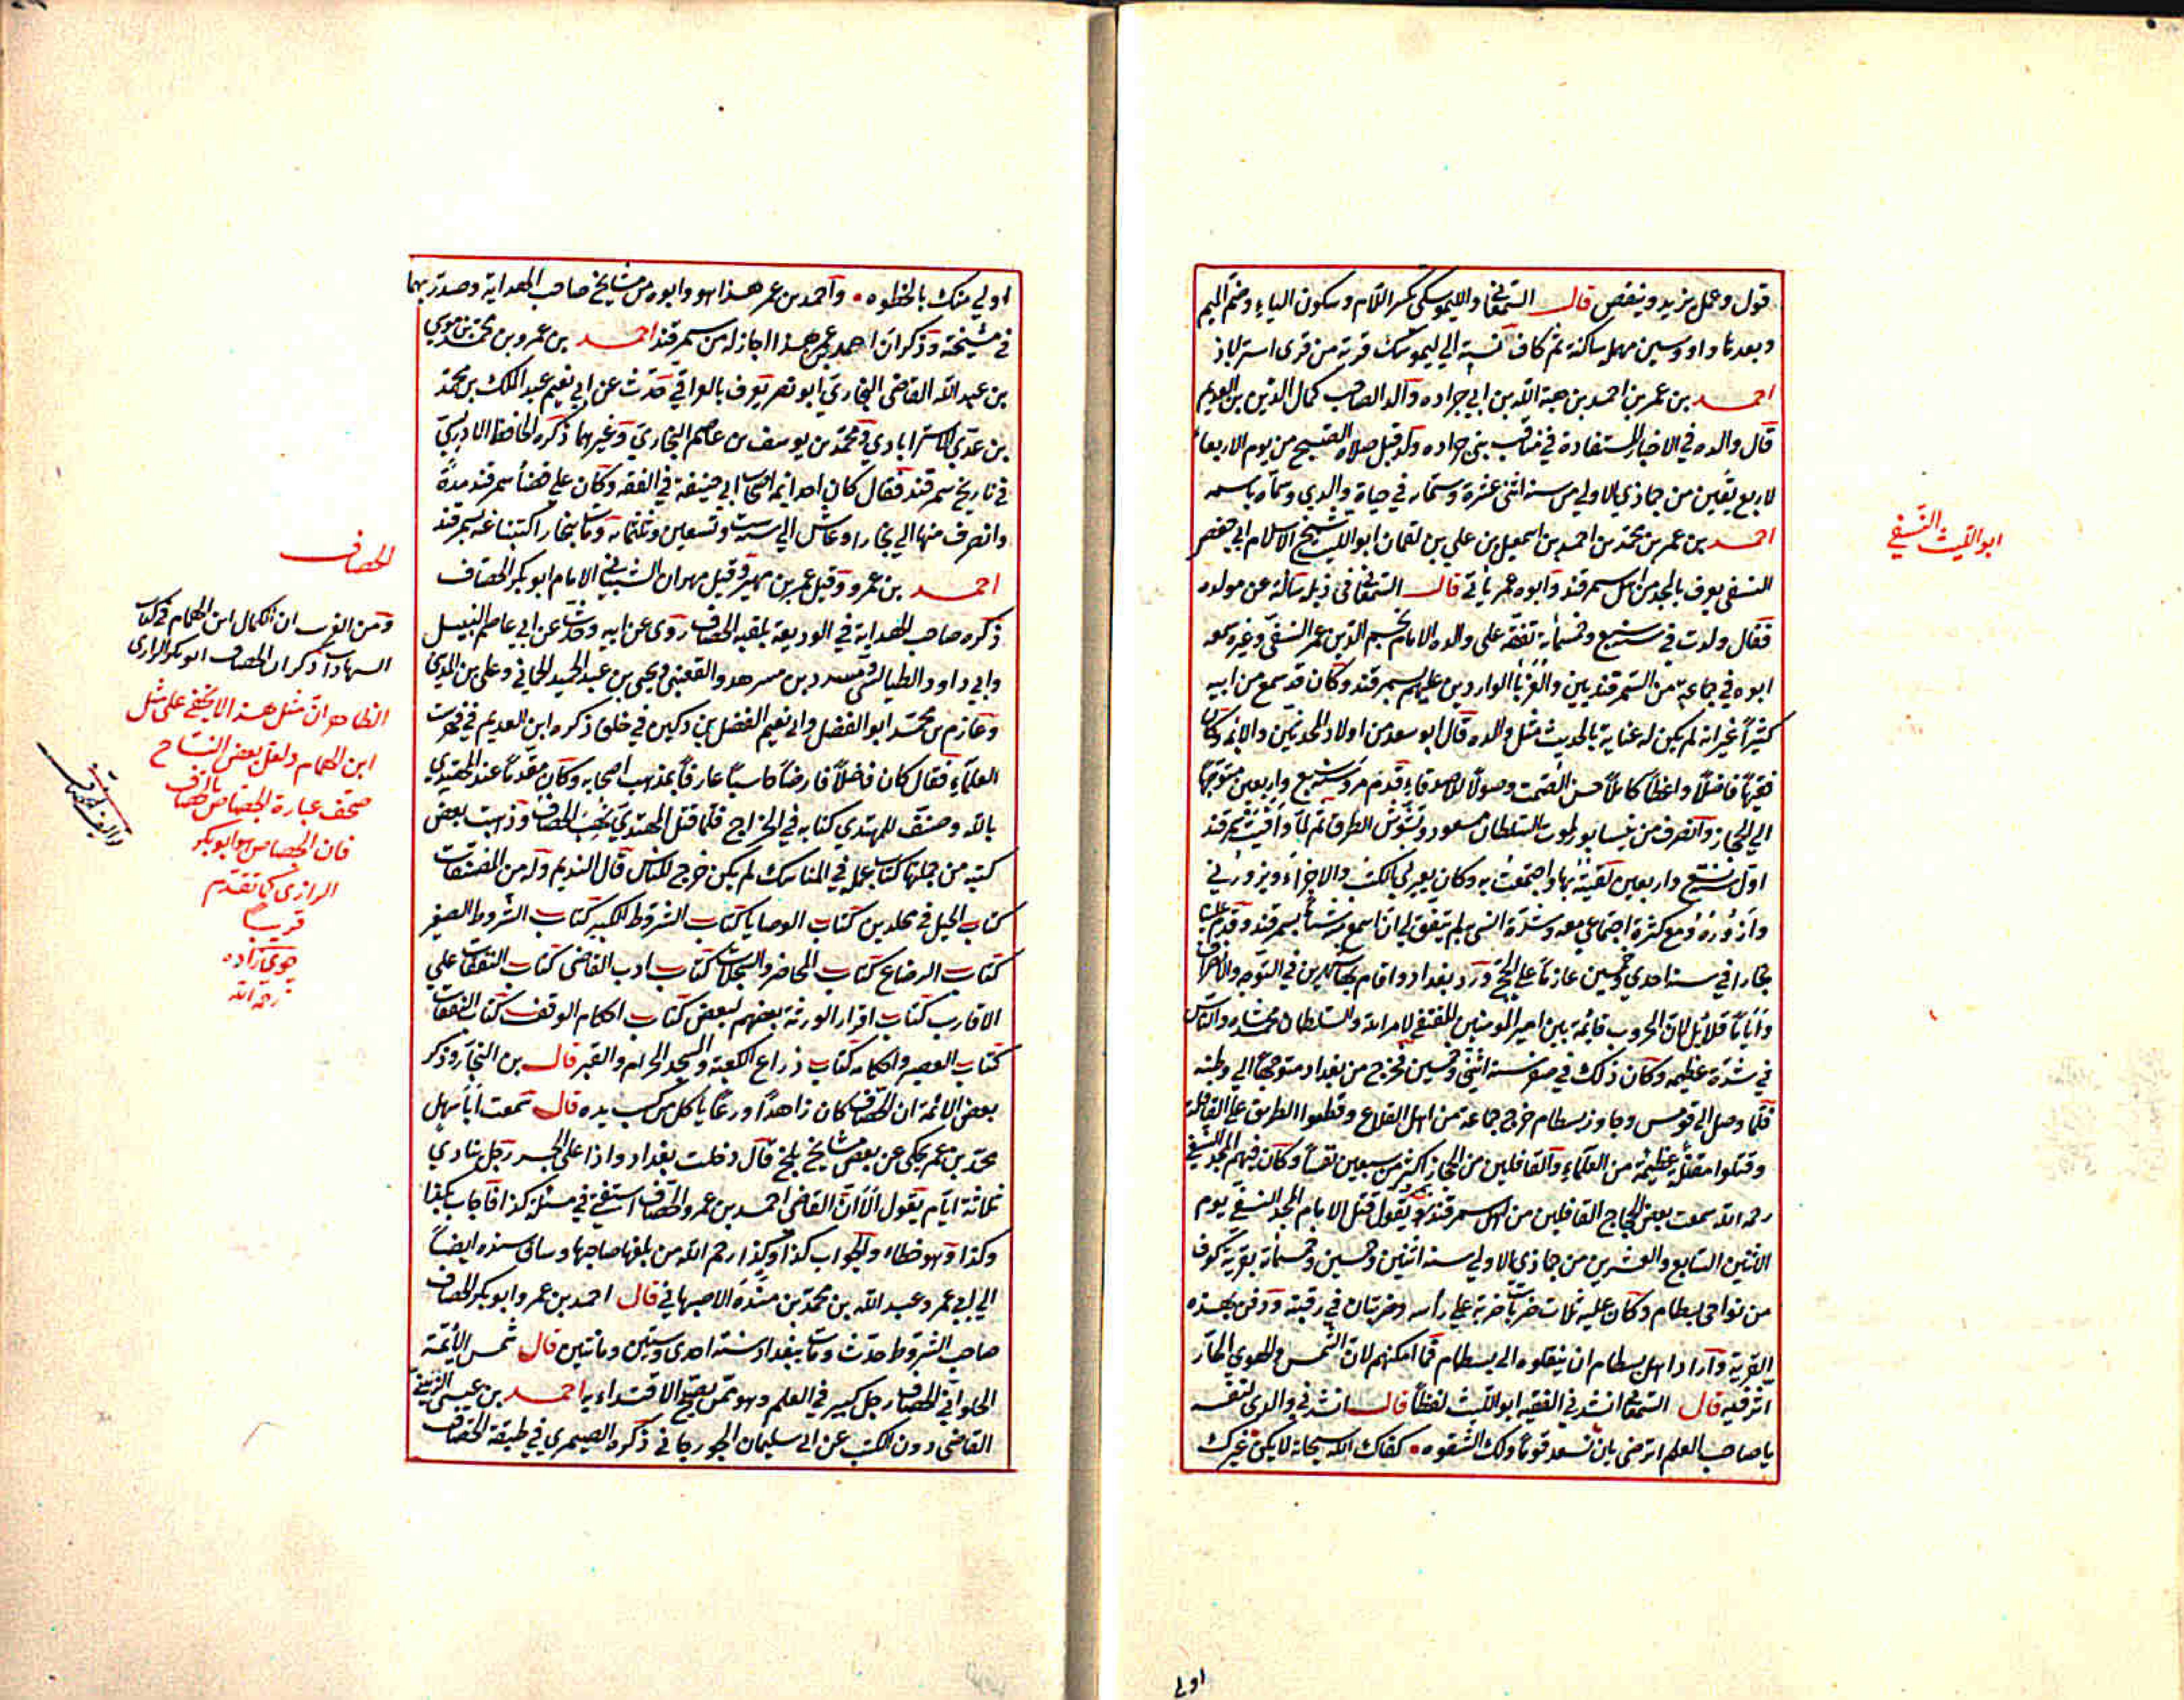 قول وعمل يزيد وينقص قال السمعاني والليموسكي بكسر اللام وسكون الياء وضم الميم
وبعدها واو وسين مهملة ساكنة ثم كاف نسبة الي ليموسك قرية من قري استراباذ
احمد بن عمر بن احمد بن هبة الله بن ابي جراده والد الصاحب كمال الدين بن العديم
قال والده في الاخبار المستفادة في مناقب بني جراده ولد قبل صلاة الصبح من يوم الاربعاء
لاربع بقين من جماذي الاولي من سنة اثنتي عشرة وستماية في حياة والدي وسماه باسمه
احمد بن عمر بن محمد بن احمد بن اسمعيل بن علي بن لقمان ابو الليث شيخ الاسلام ابي حفص
النسفي يعرف بالمجد من اهل سمرقند وابوه عمر ياتي قال السمعاني في ذيله سالته عن مولده
فقال ولدت في سنة سبع وخمسماية تفقه علي والده الامام نجم الدين عمر النسفي وغيره سمعه
ابوه في جماعة من السمرقنديين والغرباء الواردين عليهم بسمرقند وكان قد سمع من ابيه
كثيرًا غير انه لم يكن له عناية بالحديث مثل والده قال ابو سعد من اولاد المحدثين والائمة وكان
فقيهًا فاضلًا واعظًا كاملًا حسن الصمت وصولًا للاصدقاء قدم مرو سنة سبع واربعين متوجهًا
الي الحجاز وانصرف من نيسابور لموت السلطان مسعود وتشوش الطرق ثم لما وافيت سمرقند
اول سنة تسع واربعين لقيته بها واجتمعت به وكان يعيرني الكتب والاجزاء ويزورني
وازوره ومع كثرة اجتماعي معه وشدة انسي به لم يتفق لي ان اسمع منه شيئا بسمرقند وقدم علينا
بخارا في سنة احدي وخمسين عازمًا علي الحج وورد بغداد واقام بها شهرين في التوجه والانصراف
واياما قلائل لان الحروب قائمة بين امير المومنين المقتفي لامر الله والسلطان محمد شاه والناس
في شدة عظيمة وكان ذلك في صفر سنة اثنتي وخمسين فخرج من بغداد متوجهًا الي وطنه
فلما وصل الي قومس وجاوز بسطام خرج جماعة من اهل القلاع وقطعوا الطريق علي القافلة
وقتلوا مقتلة عظيمة من العلماء والقافلين من الحجاز اكثر من سبعين نفسًا وكان فيهم المجد النسفي
رحمه الله سمعت بعض الحجاج القافلين من اهل سمرقند يقول قتل الامام المجد النسفي يوم
الاثنين السابع والعشرين من جماذي الاولي سنة اثنتين وخمسين وخمسماية بقرية كوف
من نواحي بسطام وكان عليه ثلاث ضربات ضربة علي رأسه وضربتان في رقبته ودفن بهذه
القرية واراد اهل بسطام ان ينقلوه الي بسطام فما امكنهم لان الشمس والهوي الحار
اثر فيه قال السمعاني انشدني الفقيه ابو الليث لفظًا قال انشدني والدي لنفسه
يا صاحب العلم اترضي بان تسعد قوم ولك الشقوه • كفاك الله سبحانه لا يكن غيرك
اولي
ابو الليث النسفي
اولي منك بالحظوه • واحمد بن عمر هذا هو وابوه من مشايخ صاحب الهداية وصدر بهما
في مشيخته وذكر ان احمد بن عمر هذا اجاز له من سمرقند احمد بن عمرو بن محمد بن موسي
بن عبد الله القاضي البخاري ابو نصر يعرف بالعراقي حدث عن ابي نعيم عبد الملك بن محمد
بن عدي الاسترابادي ومحمد بن يوسف بن عاصم البخاري وغيرهما ذكره الحافظ الادريسي
في تاريخ سمرقند فقال كان احد ائمة اصحاب ابي حنيفة في الفقه وكان علي قضاء سمرقند مدة
وانصرف منها الي بخارا وعاش الي سنة ست وتسعين وثلثماية ومات ببخارا كتبنا عنه بسمرقند
احمد بن عمرو وقيل عمر بن مهير وقيل مهران الشيباني الامام ابو بكر الخصاف
ذكره صاحب الهداية في الوديعة بلقبه الخصاف روي عن ابيه وحدث عن ابي عاصم النبيل
وابي داود الطيالسي ومسدد بن مسرهد والقعنبي ويحيي بن عبد الحميد الحماني وعلي بن المديني
وعارم بن محمد ابو الفضل وابي نعيم الفضل بن دكين في خلق ذكره ابن النديم في فهرست
العلماء فقال كان فاضلًا فارضًا حاسبًا عارفًا بمذهب اصحابه وكان مقدمًا عند المهتدي
بالله وصنف للمهتدي كتابه في الخراج فلما قتل المهتدي نهب الخصاف وذهبت بعض
كتبه من جملتها كتاب عمله في المناسك لم يكن خرج للناس قال النديم وله من المصنفات
كتاب الحيل في مجلدين كتاب الوصايا كتاب الشروط الكبير كتاب الشروط الصغير
كتاب الرضاع كتاب المحاضر والسجلات كتاب ادب القاضي كتاب النفقات علي
الاقارب كتاب اقرار الورثة بعضهم لبعض كتاب احكام الوقف كتاب النفقات
كتاب العصير واحكامه كتاب ذراع الكعبة والمسجد الحرام والقبر قال بن النجار وذكر
بعض الائمة ان الخصاف كان زاهدًا ورعًا ياكل من كسب يده قال سمعت ابا سهل
محمد بن عمر يحكي عن بعض مشايخ بلخ قال دخلت بغداد واذا علي الجسر رجل ينادي
ثلاثة ايام يقول الا ان القاضي احمد بن عمرو الخصاف استفتي في مسئلة كذا فاجاب بكذا
وكذا وهو خطاء والجواب كذا وكذا رحم الله من بلغها صاحبها وساق سنده ايضًا
الي ابي عمرو عبد الله بن محمد بن منده الاصبهاني قال احمد بن عمرو ابو بكر الخصاف
صاحب الشروط حدث ومات ببغداد سنة احدي وستين ومائتين قال شمس الائمة
الحلواني الخصاف رجل كبير في العلم وهو ممن يصح الاقتداء به احمد بن عيسي الزينبي
القاضي دون الكتب عن ابي سليمان الجورجاني ذكره الصيمري في طبقة الخصاف
الخصاف
ومن الغريب ان الكمال ابن الهمام في كتاب
الشهادات ذكر ان الخصاف ابو بكر الرازي
الظاهر ان مثل هذا لا يخفي علي مثل
ابن الهمام ولعل بعض النساخ
صحف عبارة الجصاص بالخصاف
فان الجصاص هو ابو بكر
الرازي كما تقدم
قريبا
جوي زاده
رحمه الله